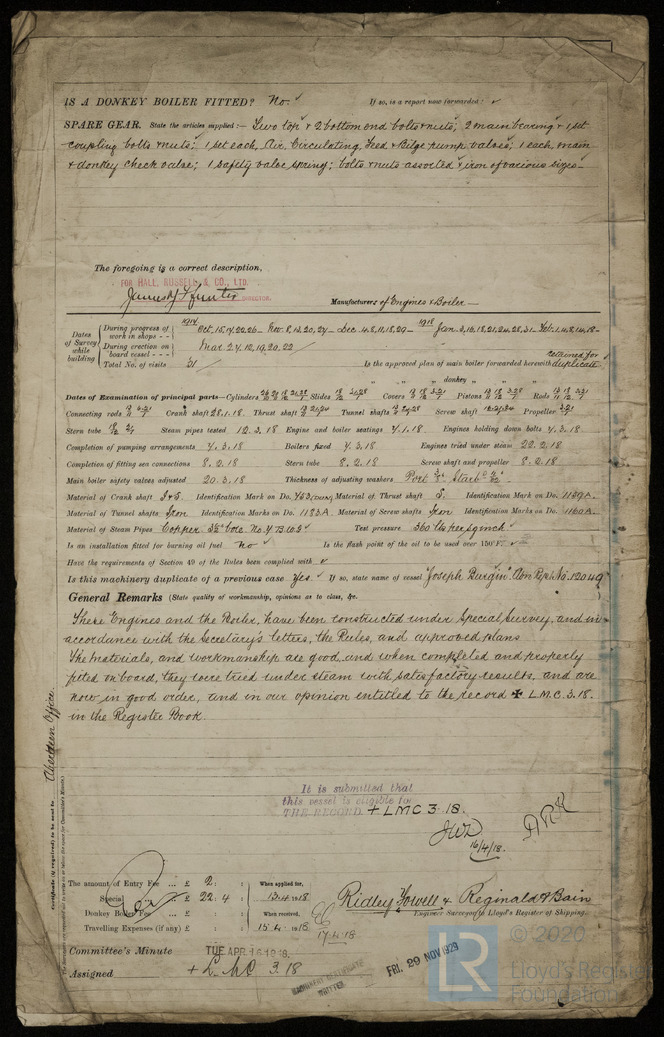 IS A DONKEY BOILER FITTED? No. ✓ If so, is a report now forwarded: ✓
SPARE GEAR. State the articles supplied:— Two top & 2 bottom end bolts & nuts; 2 main bearing & 1 set
coupling bolts & nuts; 1 set each, Air, Circulating, Feed & Bilge pump valves; 1 each, main
& donkey check valve; 1 safety valve spring; bolts & nuts assorted & iron of various sizes—
The foregoing is a correct description,
FOR HALL, RUSSELL & CO., LTD.
DIRECTOR. Manufacturers of Engines & Boiler—
Dates of Survey while building
During progress of work in shops - - 1917 Oct. 15,17,22,26– Nov. 8,13,20,27– Dec. 4,8,11,18,29– 1918 Jan. 3,16,18,21,24,28,31. Feb. 1,4,8,14,18–
During erection on board vessel - - - Mar. 2,7,12,19,20,22
Total No. of visits 31 Is the approved plan of main boiler forwarded herewith retained for duplicate
" " donkey " " "
Dates of Examination of principal parts—Cylinders Slides Covers Pistons Rods
Connecting rods Crank shaft 28.1.18. Thrust shaft Tunnel shafts Screw shaft Propeller
Stern tube Steam pipes tested 12.3.18 Engine and boiler seatings 4.1.18. Engines holding down bolts 4.3.18.
Completion of pumping arrangements 7.3.18 Boilers fixed 4.3.18 Engines tried under steam 22.2.18
Completion of fitting sea connections 8.2.18 Stern tube 8.2.18 Screw shaft and propeller 8.2.18
Main boiler safety valves adjusted 20.3.18 Thickness of adjusting washers Port Starbd
Material of Crank shaft I & S. Identification Mark on Do. Material of Thrust shaft S. Identification Mark on Do. 1139A.
Material of Tunnel shafts Iron Identification Marks on Do. 1183A. Material of Screw shafts Iron Identification Marks on Do. 1160A.
Material of Steam Pipes Copper Test pressure 360 lbs per sq inch ✓
Is an installation fitted for burning oil fuel no ✓ Is the flash point of the oil to be used over 150°F. ✓
Have the requirements of Section 49 of the Rules been complied with ✓
Is this machinery duplicate of a previous case Yes. ✓ If so, state name of vessel "Joseph Burgin" Abn Rept. No. 12049
General Remarks (State quality of workmanship, opinions as to class, &c.
These Engines and the Boiler, have been constructed under Special Survey, and in
accordance with the Secretary's letters, the Rules, and approved plans
The materials, and workmanship are good, and when completed and properly
fitted on board, they were tried under steam with satisfactory results, and are
now in good order, and in our opinion entitled to the record ✠ L.M.C. 3.18.
in the Register Book.
Certificate (if required) to be sent to Aberdeen Office.
It is submitted that
this vessel is eligible for
THE RECORD. + LMC 3.18.
16/4/18.
The amount of Entry Fee ... £ 2 : : When applied for,
Special ... £ 22 . 4 : 13.4.1918
Donkey Boiler Fee ... £ : : When received,
Travelling Expenses (if any) £ : : 15.4.1918
17.4.18
Ridley Howell & Reginald Bain
Engineer Surveyor to Lloyd's Register of Shipping.
Committee's Minute TUE. APR. 16 1918.
Assigned + LMC 3.18
MACHINERY CERTIFICATE
WRITTEN
FRI. 29 NOV 1929
LR
© 2020
Lloyd's Register
Foundation